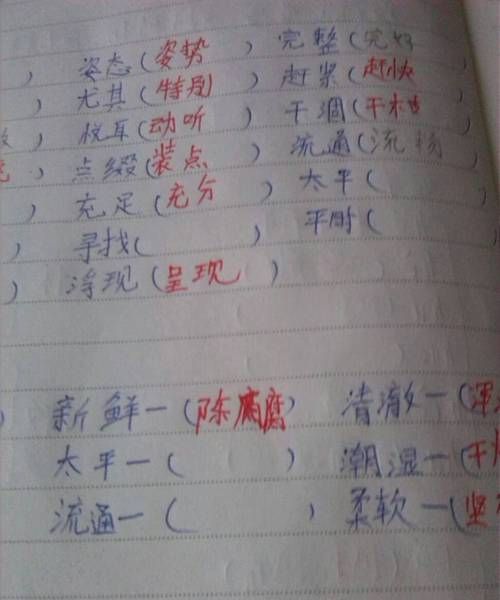 ) 姿态(姿势) 完整(完好
) 尤其(特别) 赶紧(赶快
悦耳(动听) 干涸(干枯
) 点缀(装点) 流通(流畅)
) 充足(充分) 太平(
) 寻找( ) 平时( )
) 浮现(呈现)
) 新鲜—(陈腐) 清澈—(浑
太平—( ) 潮湿—(干
流通—( ) 柔软—(坚